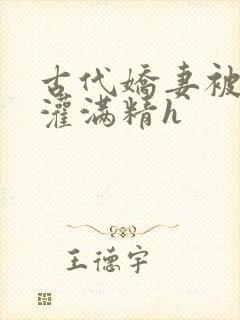 古代娇妻被
灌满精h
王德宇